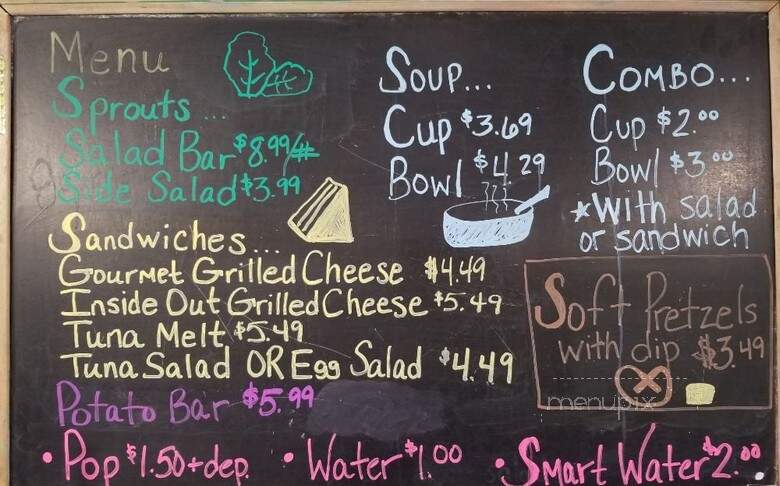 Menu
Sprouts...
Salad Bar $8.99/#
Side Salad $3.99
Soup...
Cup $3.69
Bowl $4.29
Combo...
Cup $2.00
Bowl $3.00
*With salad
or sandwich
Sandwiches...
Gourmet Grilled Cheese $4.49
Inside Out Grilled Cheese $5.49
Tuna Melt $5.49
Tuna Salad OR Egg Salad $4.49
Potato Bar $5.99
Soft Pretzels
with dip $3.49
menupix
• Pop $1.50+dep. • Water $1.00 • Smart Water $2.00.